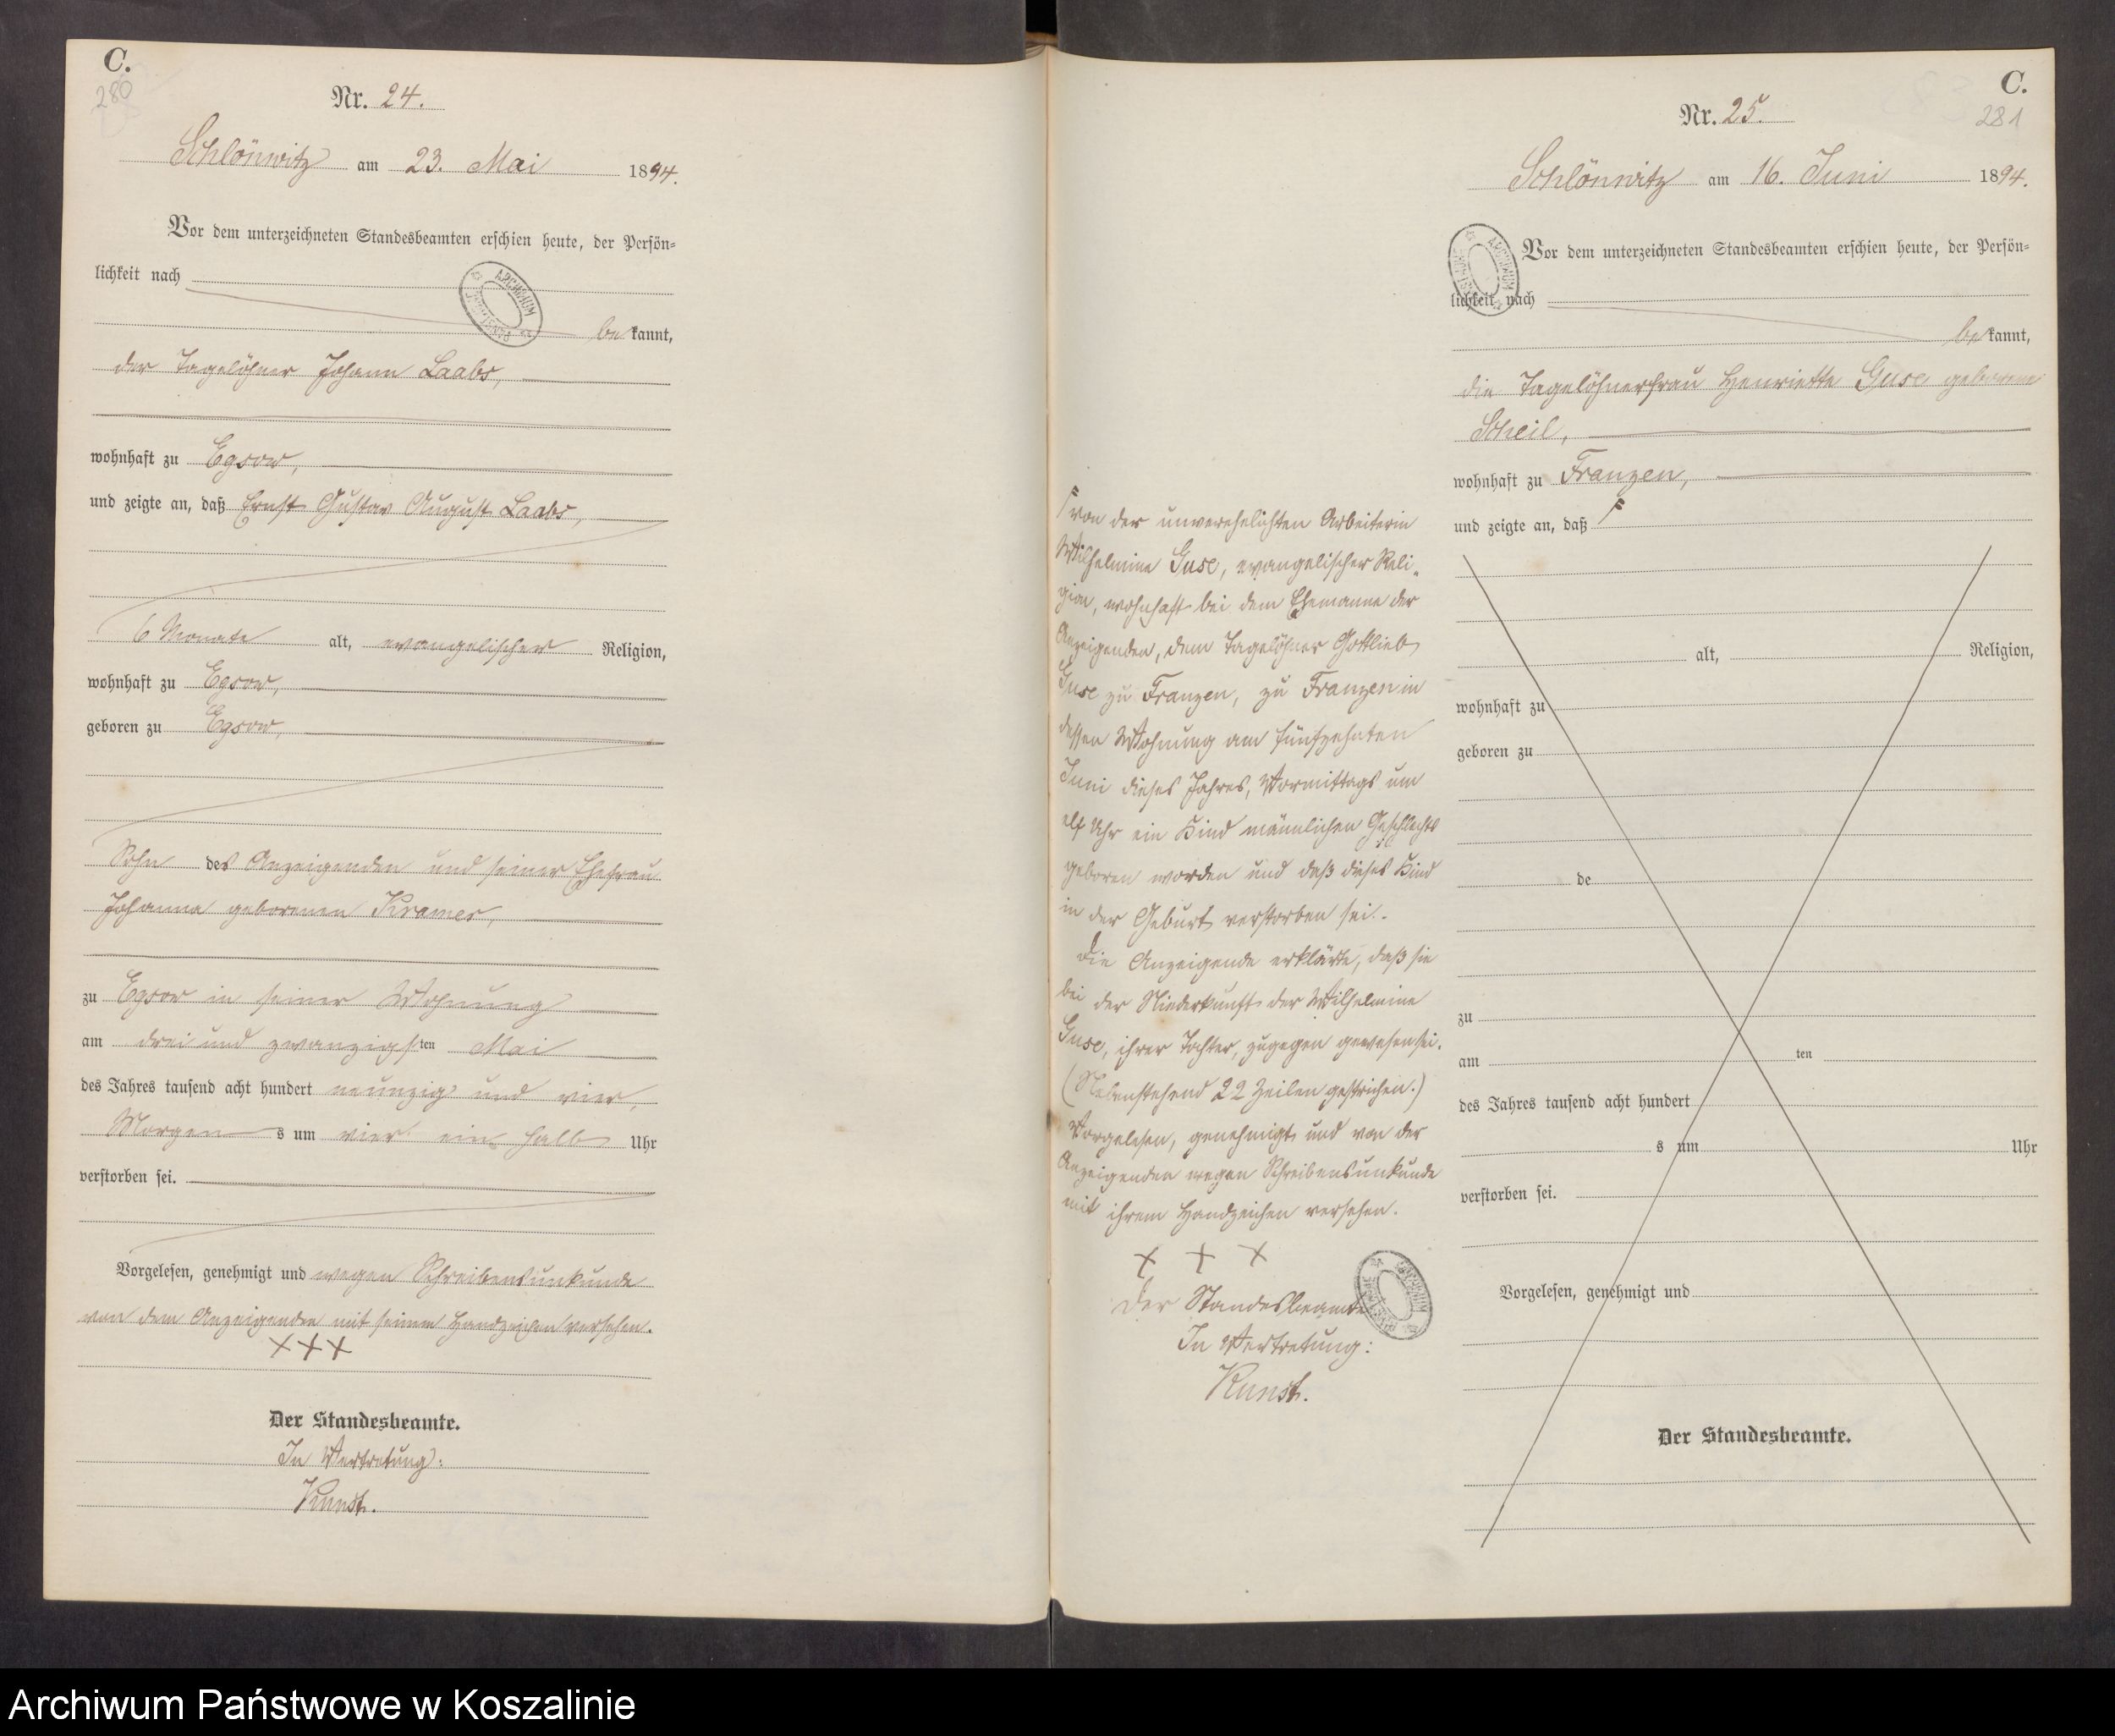 C.
280
Nr. 24.
Schlönwitz am 23. Mai 1894.
Vor dem unterzeichneten Standesbeamten erschien heute, der Persön-
lichkeit nach
be kannt,
der Tagelöhner Johann Laabs,
wohnhaft zu Egsow,
und zeigte an, daß Ernst Gustav August Laabs,
6 Monate alt, evangelischer Religion,
wohnhaft zu Egsow,
geboren zu Egsow,
Sohn des Anzeigenden und seiner Ehefrau
Johanna geborenen Kramer,
zu Egsow in seiner Wohnung
am drei und zwanzigsten Mai
des Jahres tausend acht hundert neunzig und vier,
Morgen s um vier ein halb Uhr
verstorben sei.
Vorgelesen, genehmigt und wegen Schreibensunkunde
von dem Anzeigenden mit seinem Handzeichen versehen.
+++
Der Standesbeamte.
In Vertretung:
Kunst.
C.
281
Nr. 25.
Schlönwitz am 16. Juni 1894.
Vor dem unterzeichneten Standesbeamten erschien heute, der Persön-
lichkeit nach
be kannt,
die Tagelöhnerfrau Henriette Guse geborene
Scheil,
wohnhaft zu Franzen,
und zeigte an, daß
von der unverehelichten Arbeiterin
Wilhelmine Guse, evangelischer Reli-
gion, wohnhaft bei dem Ehemanne der
Anzeigenden, dem Tagelöhner Gottlieb
Guse zu Franzen, zu Franzen in
dessen Wohnung am fünfzehnten
Juni dieses Jahres, Vormittags um
elf Uhr ein Kind männlichen Geschlechts
geboren worden und daß dieses Kind
in der Geburt verstorben sei.
Die Anzeigende erklärte, daß sie
bei der Niederkunft der Wilhelmine
Guse, ihrer Tochter, zugegen gewesen sei.
(Nebenstehend 22 Zeilen gestrichen.)
Vorgelesen, genehmigt und von der
Anzeigenden wegen Schreibensunkunde
mit ihrem Handzeichen versehen.
+ + +
Der Standesbeamte
In Vertretung:
Kunst.
alt, Religion,
wohnhaft zu
geboren zu
de
zu
am ten
des Jahres tausend acht hundert
s um Uhr
verstorben sei.
Vorgelesen, genehmigt und
Der Standesbeamte.
Archiwum Państwowe w Koszalinie